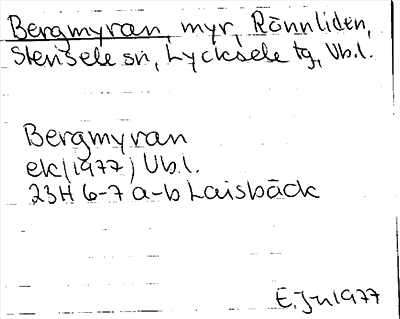 Bergmyran, myr, Rönnliden,
Stensele sn, Lycksele tg, Vb.l.
Bergmyran
ek (1977) Vb.l.
23H 6-7 a-b Laisbäck
E. Jn 1977